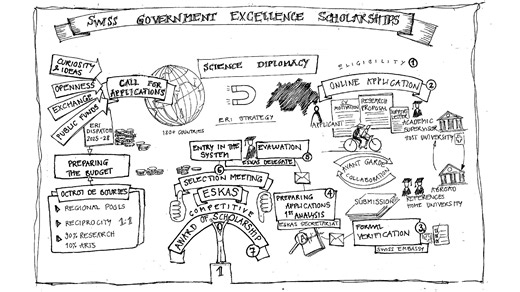 SWISS GOVERNMENT EXCELLENCE SCHOLARSHIPS
CURIOSITY
& IDEAS
OPENNESS
EXCHANGE
PUBLIC FUNDS
CALL FOR
APPLICATIONS
ERI
DISPATCH
2025-28
180+ COUNTRIES
SCIENCE DIPLOMACY
ERI STRATEGY
ELIGIBILITY 1
ONLINE APPLICATION 2
MOTIVATION
RESEARCH
PROPOSAL
SUPPORT
LETTER
APPLICANT
ACADEMIC
SUPERVISOR
HOST UNIVERSITY
AVANT GARDE
COLLABORATION
ABROAD
REFERENCES
HOME UNIVERSITY
SUBMISSION
FORMAL
VERIFICATION
3
SWISS EMBASSY
PREPARING
APPLICATIONS
1st ANALYSIS
4
ESKAS SECRETARIAT
ENTRY IN THE
SYSTEM
EVALUATION
ESKAS DELEGATE
5
6
SELECTION MEETING
ESKAS
COMPETITIVE
AWARD OF SCHOLARSHIP
7
1
PREPARING
THE BUDGET
OCTROI DE BOURSES
REGIONAL POOLS
RECIPROCITY 1:1
90% RESEARCH
10% ARTS